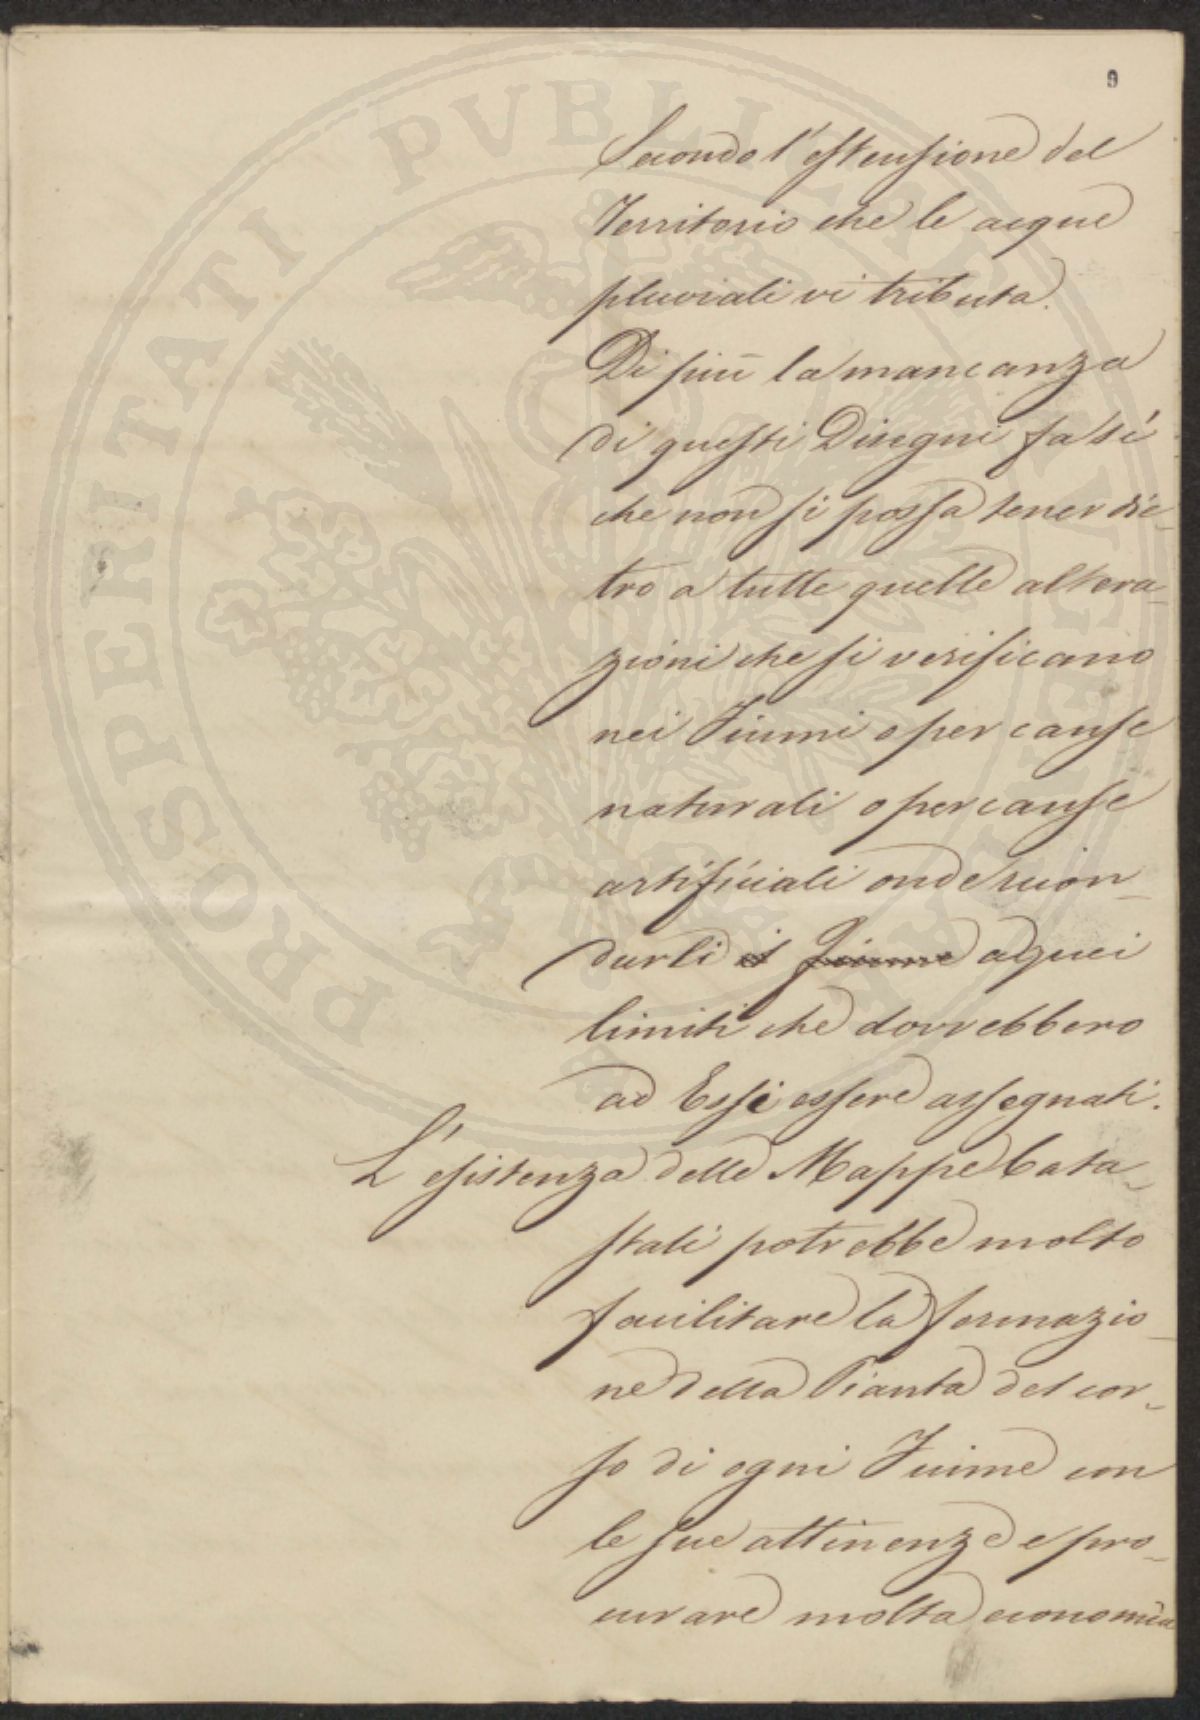 9
Secondo l'estensione del
Territorio che le acque
pluviali vi tributa.
Di più la mancanza
di questi Disegni fa sì
che non si possa tener die-
tro a tutte quelle altera-
zioni che si verificano
nei Fiumi o per cause
naturali o per cause
artificiali onde ricon-
durli il Fiume a quei
limiti che dovrebbero
ad Essi essere assegnati.
L'esistenza delle Mappe Cata-
stali potrebbe molto
facilitare la formazio-
ne della Pianta del cor-
so di ogni Fiume con
le sue attinenze e pro-
curare molta economia
PROSPERITATI PVBLICAE